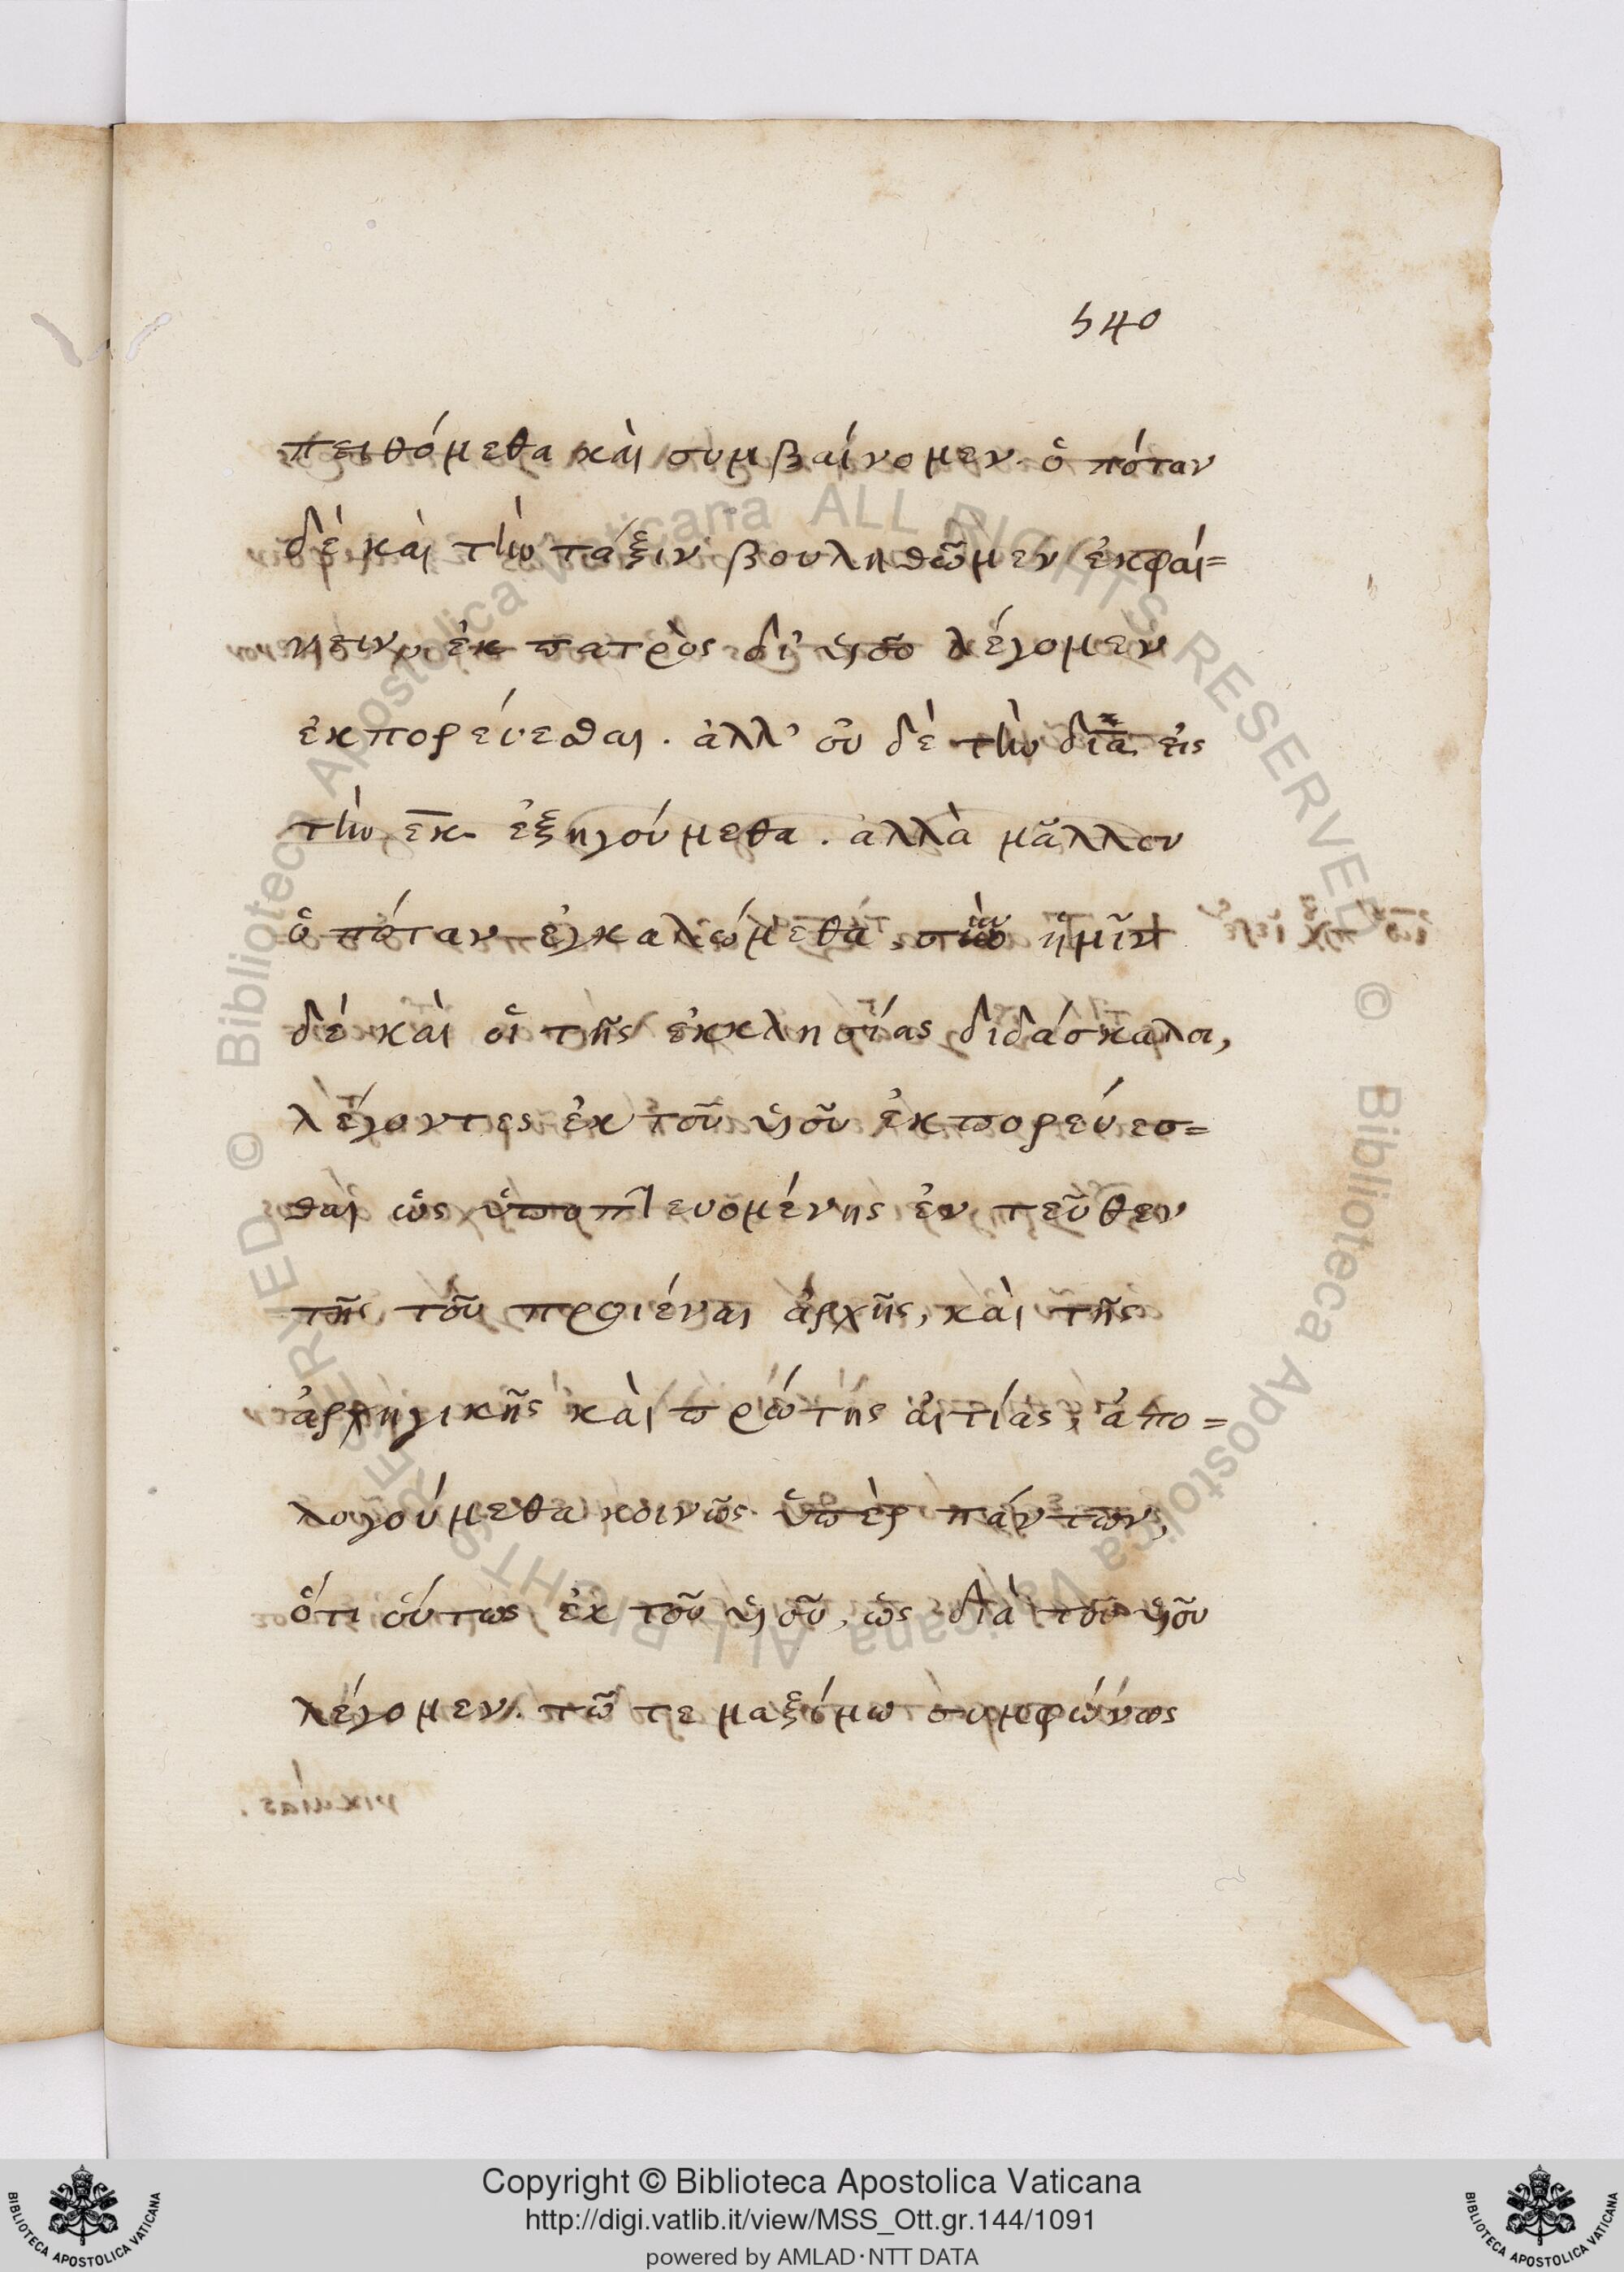 540
πειθόμεθα καὶ συμβαίνομεν. ὁπόταν
δὲ καὶ τὴν τάξιν βουληθῶμεν ἐκφαί=
νειν, ἐκ πατρὸς δι' υἱοῦ λέγομεν
ἐκπορεύεσθαι. ἀλλ' οὐ δὲ τὴν διὰ εἰς
τὴν ἐκ ἐξηγούμεθα. ἀλλὰ μᾶλλον
ὁπόταν ἐγκαλώμεθα, σὺν ἡμῖν
δὲ καὶ οἱ τῆς ἐκκλησίας διδάσκαλοι,
λέγοντες ἐκ τοῦ υἱοῦ ἐκπορεύεσ=
θαι ὡς ὑποπτευομένης ἐν τεῦθεν
τῆς τοῦ προιέναι ἀρχῆς, καὶ τῆς
ἀρχηγικῆς καὶ πρώτης αἰτίας, ἀπο=
λογούμεθα κοινῶς ὑπὲρ πάντων,
ὅτι οὕτως ἐκ τοῦ υἱοῦ, ὡς διὰ τοῦ υἱοῦ
λέγομεν. τῶ τε μαξίμω συμφώνως
Copyright © Biblioteca Apostolica Vaticana
http://digi.vatlib.it/view/MSS_Ott.gr.144/1091
powered by AMLAD·NTT DATA
BIBLIOTECA APOSTOLICA VATICANA
BIBLIOTECA APOSTOLICA VATICANA
© Biblioteca Apostolica Vaticana ALL RIGHTS RESERVED
© Biblioteca Apostolica Vaticana ALL RIGHTS RESERVED